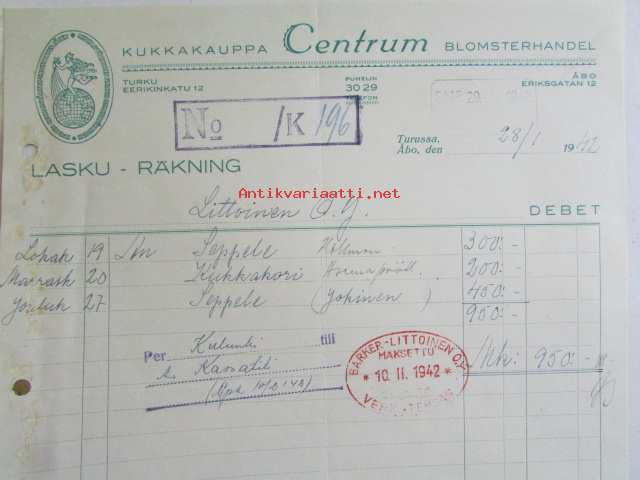 KUKKAKAUPPA Centrum BLOMSTERHANDEL
TURKU
EERIKINKATU 12
PUHELIN
3029
TELEFON
ÅBO
ERIKSGATAN 12
No /K 196
Turussa,
Åbo, den 28/1 1942
LASKU - RÄKNING
Antikvariaatti.net
Littoinen O.Y.
DEBET
Lokak 19 1 kn Seppele 300:-
Marrask 20 Kukkakori 200:-
Jouluk 27 Seppele (Jokinen) 450:-
950:-
Per Kulunki till
BARKER-LITTOINEN O.Y.
MAKSETTU
* 10. II. 1942 *
Mk: 950:-